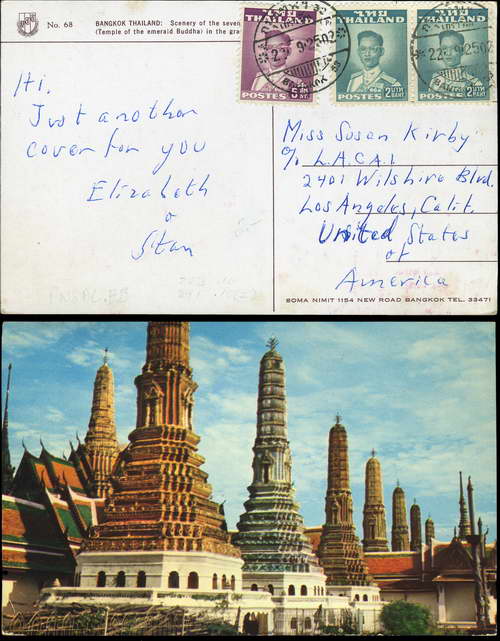 No. 68
BANGKOK THAILAND: Scenery of the seven
(Temple of the emerald Buddha) in the gra
ไทย
THAILAND
POSTES
ไทย
THAILAND
POSTES 2 บาท BAHT
THAILAND
POSTES 2 บาท BAHT
BANGKOK
Hi,
Just another
cover for you
Elizabeth
&
Stan
Miss Susan Kirby
c/o L.A.C.A.I
2401 Wilshire Blvd.
Los Angeles, Calif.
United States
of
America
BOMA NIMIT 1154 NEW ROAD BANGKOK TEL. 33471